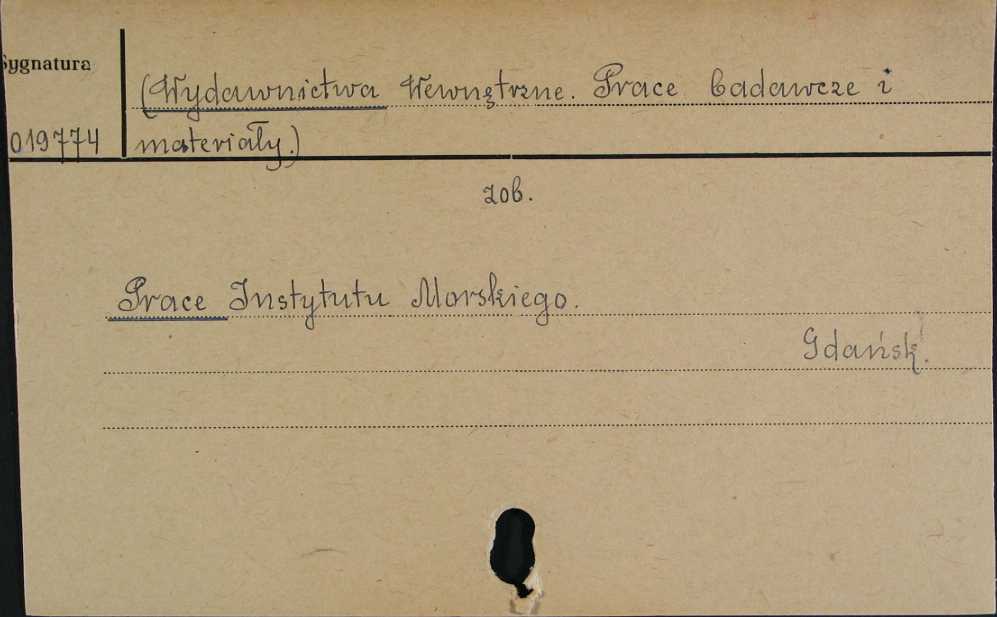 Sygnatura
(Wydawnictwa Wewnętrzne. Prace badawcze i
019774 materiały.)
zob.
Prace Instytutu Morskiego.
Gdańsk.